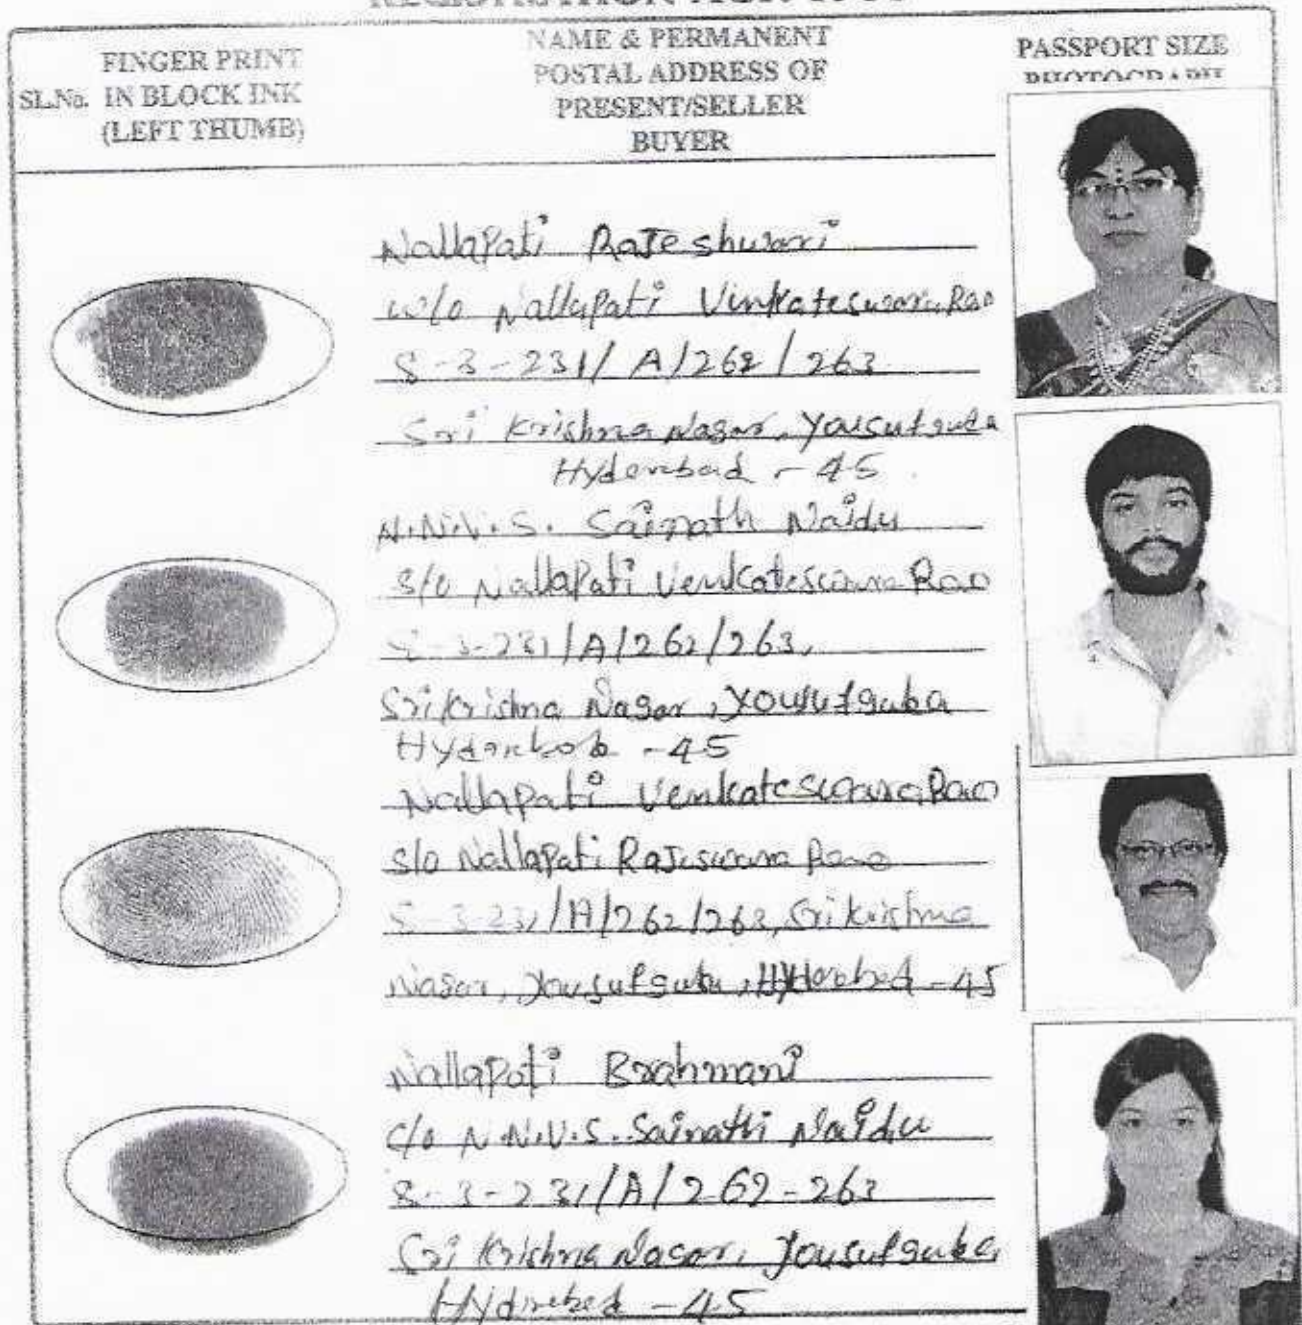 REGISTRATION ACT 1908
SL.No.
FINGER PRINT
IN BLOCK INK
(LEFT THUMB)
NAME & PERMANENT
POSTAL ADDRESS OF
PRESENT/SELLER
BUYER
PASSPORT SIZE
PHOTOGRAPH
Nallapati Rajeshwari
w/o Nallapati Venkateswara Rao
8-3-231/A/262/263
Sri Krishna Nagar, Yousufguda
Hyderabad - 45
N.N.V.S. Sainath Naidu
s/o Nallapati Venkateswara Rao
8-3-231/A/262/263,
Sri Krishna Nagar, Yousufguda
Hyderabad - 45
Nallapati Venkateswara Rao
s/o Nallapati Rajeswara Rao
8-3-231/A/262/263, Sri Krishna
Nagar, Yousufguda, Hyderabad - 45
Nallapati Brahmani
c/o N.N.V.S. Sainath Naidu
8-3-231/A/262-263
Sri Krishna Nagar, Yousufguda,
Hyderabad - 45